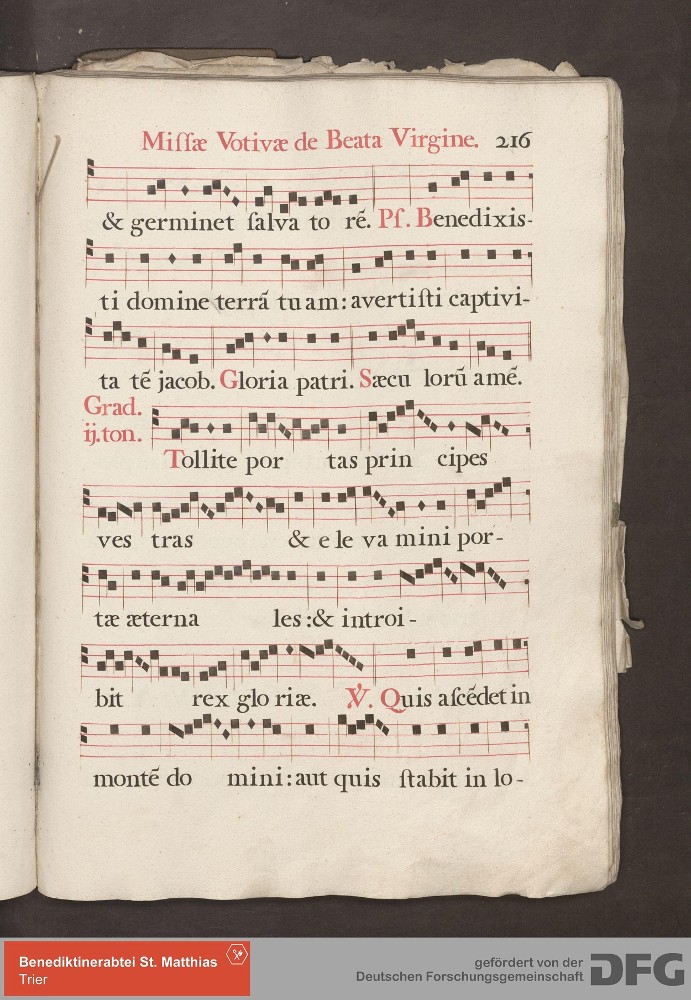 Miſſæ Votivæ de Beata Virgine. 216
& germinet ſalva to rē. Pſ. Benedixis-
ti domine terrā tuam: avertiſti captivi-
ta tē jacob. Gloria patri. Sæcu lorū amē.
Grad.
ij. ton.
Tollite por tas prin cipes
ves tras & e le va mini por-
tæ æterna les: & introi-
bit rex glo riæ. ℣. Quis aſcēdet in
montē do mini: aut quis ſtabit in lo-
Benediktinerabtei St. Matthias
Trier
gefördert von der
Deutschen Forschungsgemeinschaft
DFG